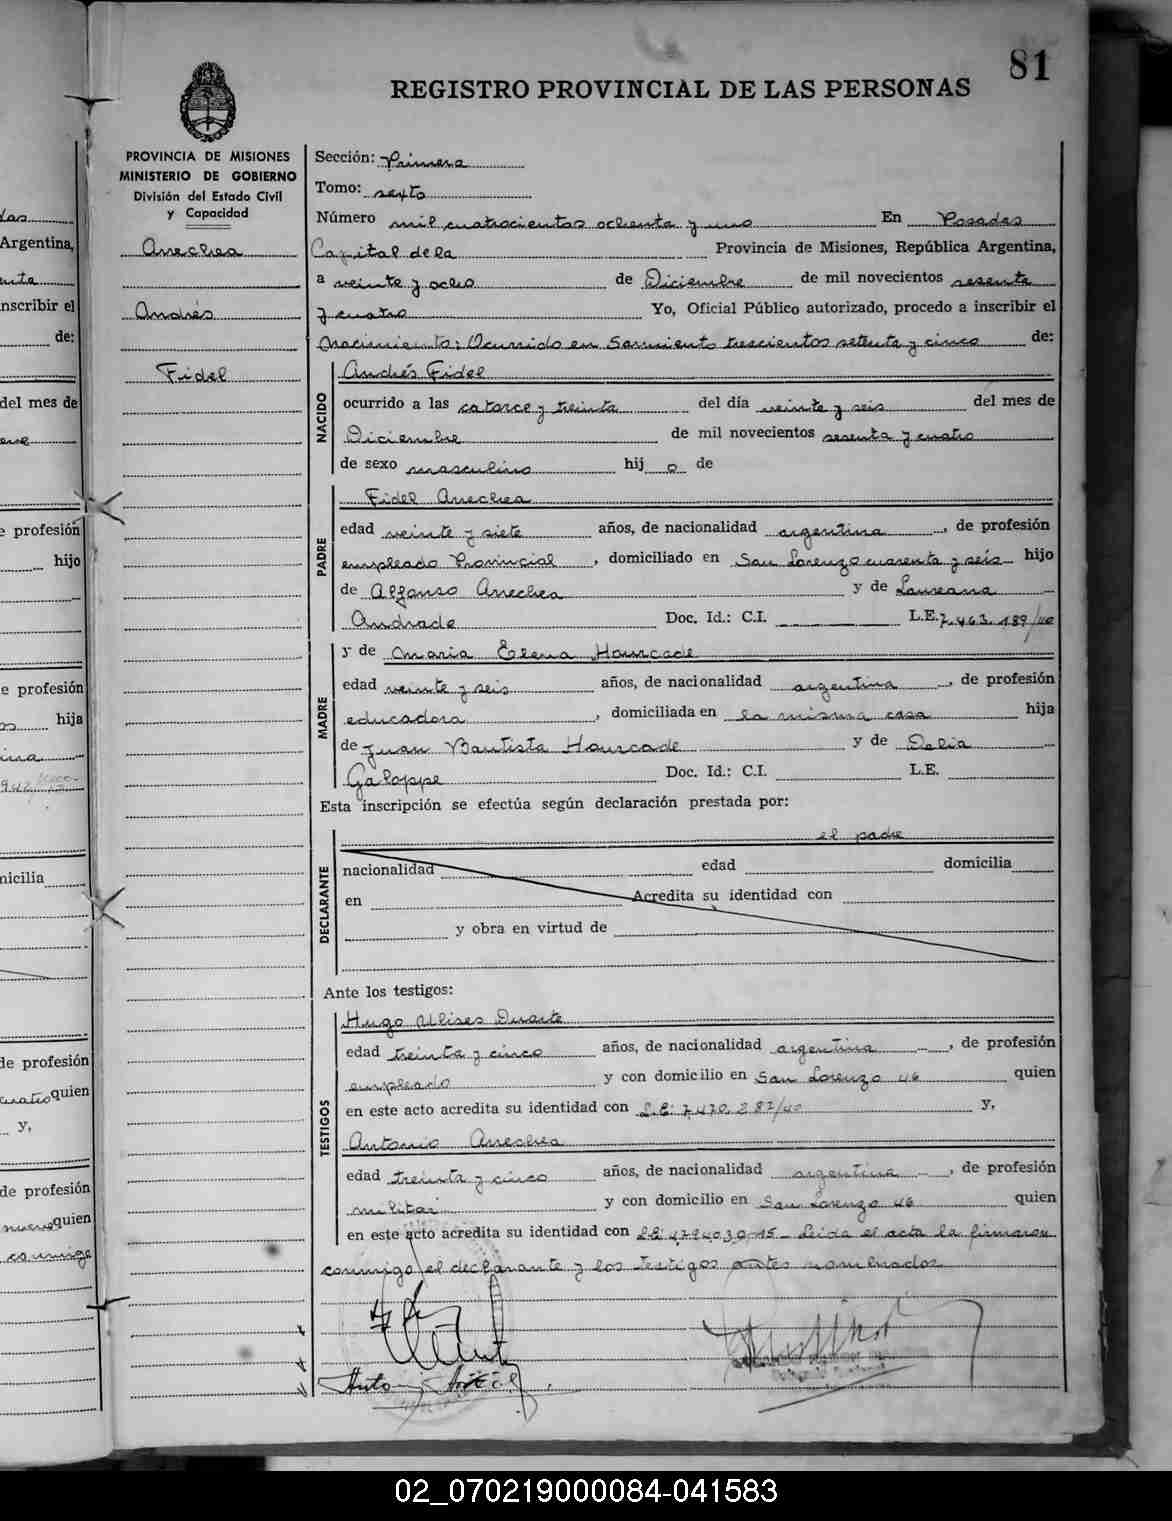 81
REGISTRO PROVINCIAL DE LAS PERSONAS
PROVINCIA DE MISIONES
MINISTERIO DE GOBIERNO
División del Estado Civil
y Capacidad
Arrechea
Andrés
Fidel
Sección: Primera
Tomo: sexto
Número mil cuatrocientos ochenta y uno En Posadas
Capital de la Provincia de Misiones, República Argentina,
a veinte y ocho de Diciembre de mil novecientos sesenta
y cuatro Yo, Oficial Público autorizado, procedo a inscribir el
nacimiento: Ocurrido en Sarmiento trescientos setenta y cinco de:
NACIDO
Andrés Fidel
ocurrido a las catorce y treinta del día veinte y seis del mes de
Diciembre de mil novecientos sesenta y cuatro
de sexo masculino hij o de
PADRE
Fidel Arrechea
edad veinte y siete años, de nacionalidad argentina, de profesión
empleado Provincial, domiciliado en San Lorenzo cuarenta y seis hijo
de Alfonso Arrechea y de Laureana
Andrade Doc. Id.: C.I. L.E. 7.463.189/40
MADRE
y de María Elena Hourcade
edad veinte y seis años, de nacionalidad argentina, de profesión
educadora, domiciliada en la misma casa hija
de Juan Bautista Hourcade y de Delia
Galoppe Doc. Id.: C.I. L.E.
Esta inscripción se efectúa según declaración prestada por:
el padre
DECLARANTE
nacionalidad edad domicilia
en Acredita su identidad con
y obra en virtud de
Ante los testigos:
TESTIGOS
Hugo Ulises Duarte
edad treinta y cinco años, de nacionalidad argentina, de profesión
empleado y con domicilio en San Lorenzo 46 quien
en este acto acredita su identidad con L.E: 7.470.287/40 y,
Antonio Arrechea
edad treinta y cinco años, de nacionalidad argentina, de profesión
militar y con domicilio en San Lorenzo 46 quien
en este acto acredita su identidad con L.E: Leida el acta la firmaron
conmigo el declarante y los testigos antes nombrados
02_070219000084-041583